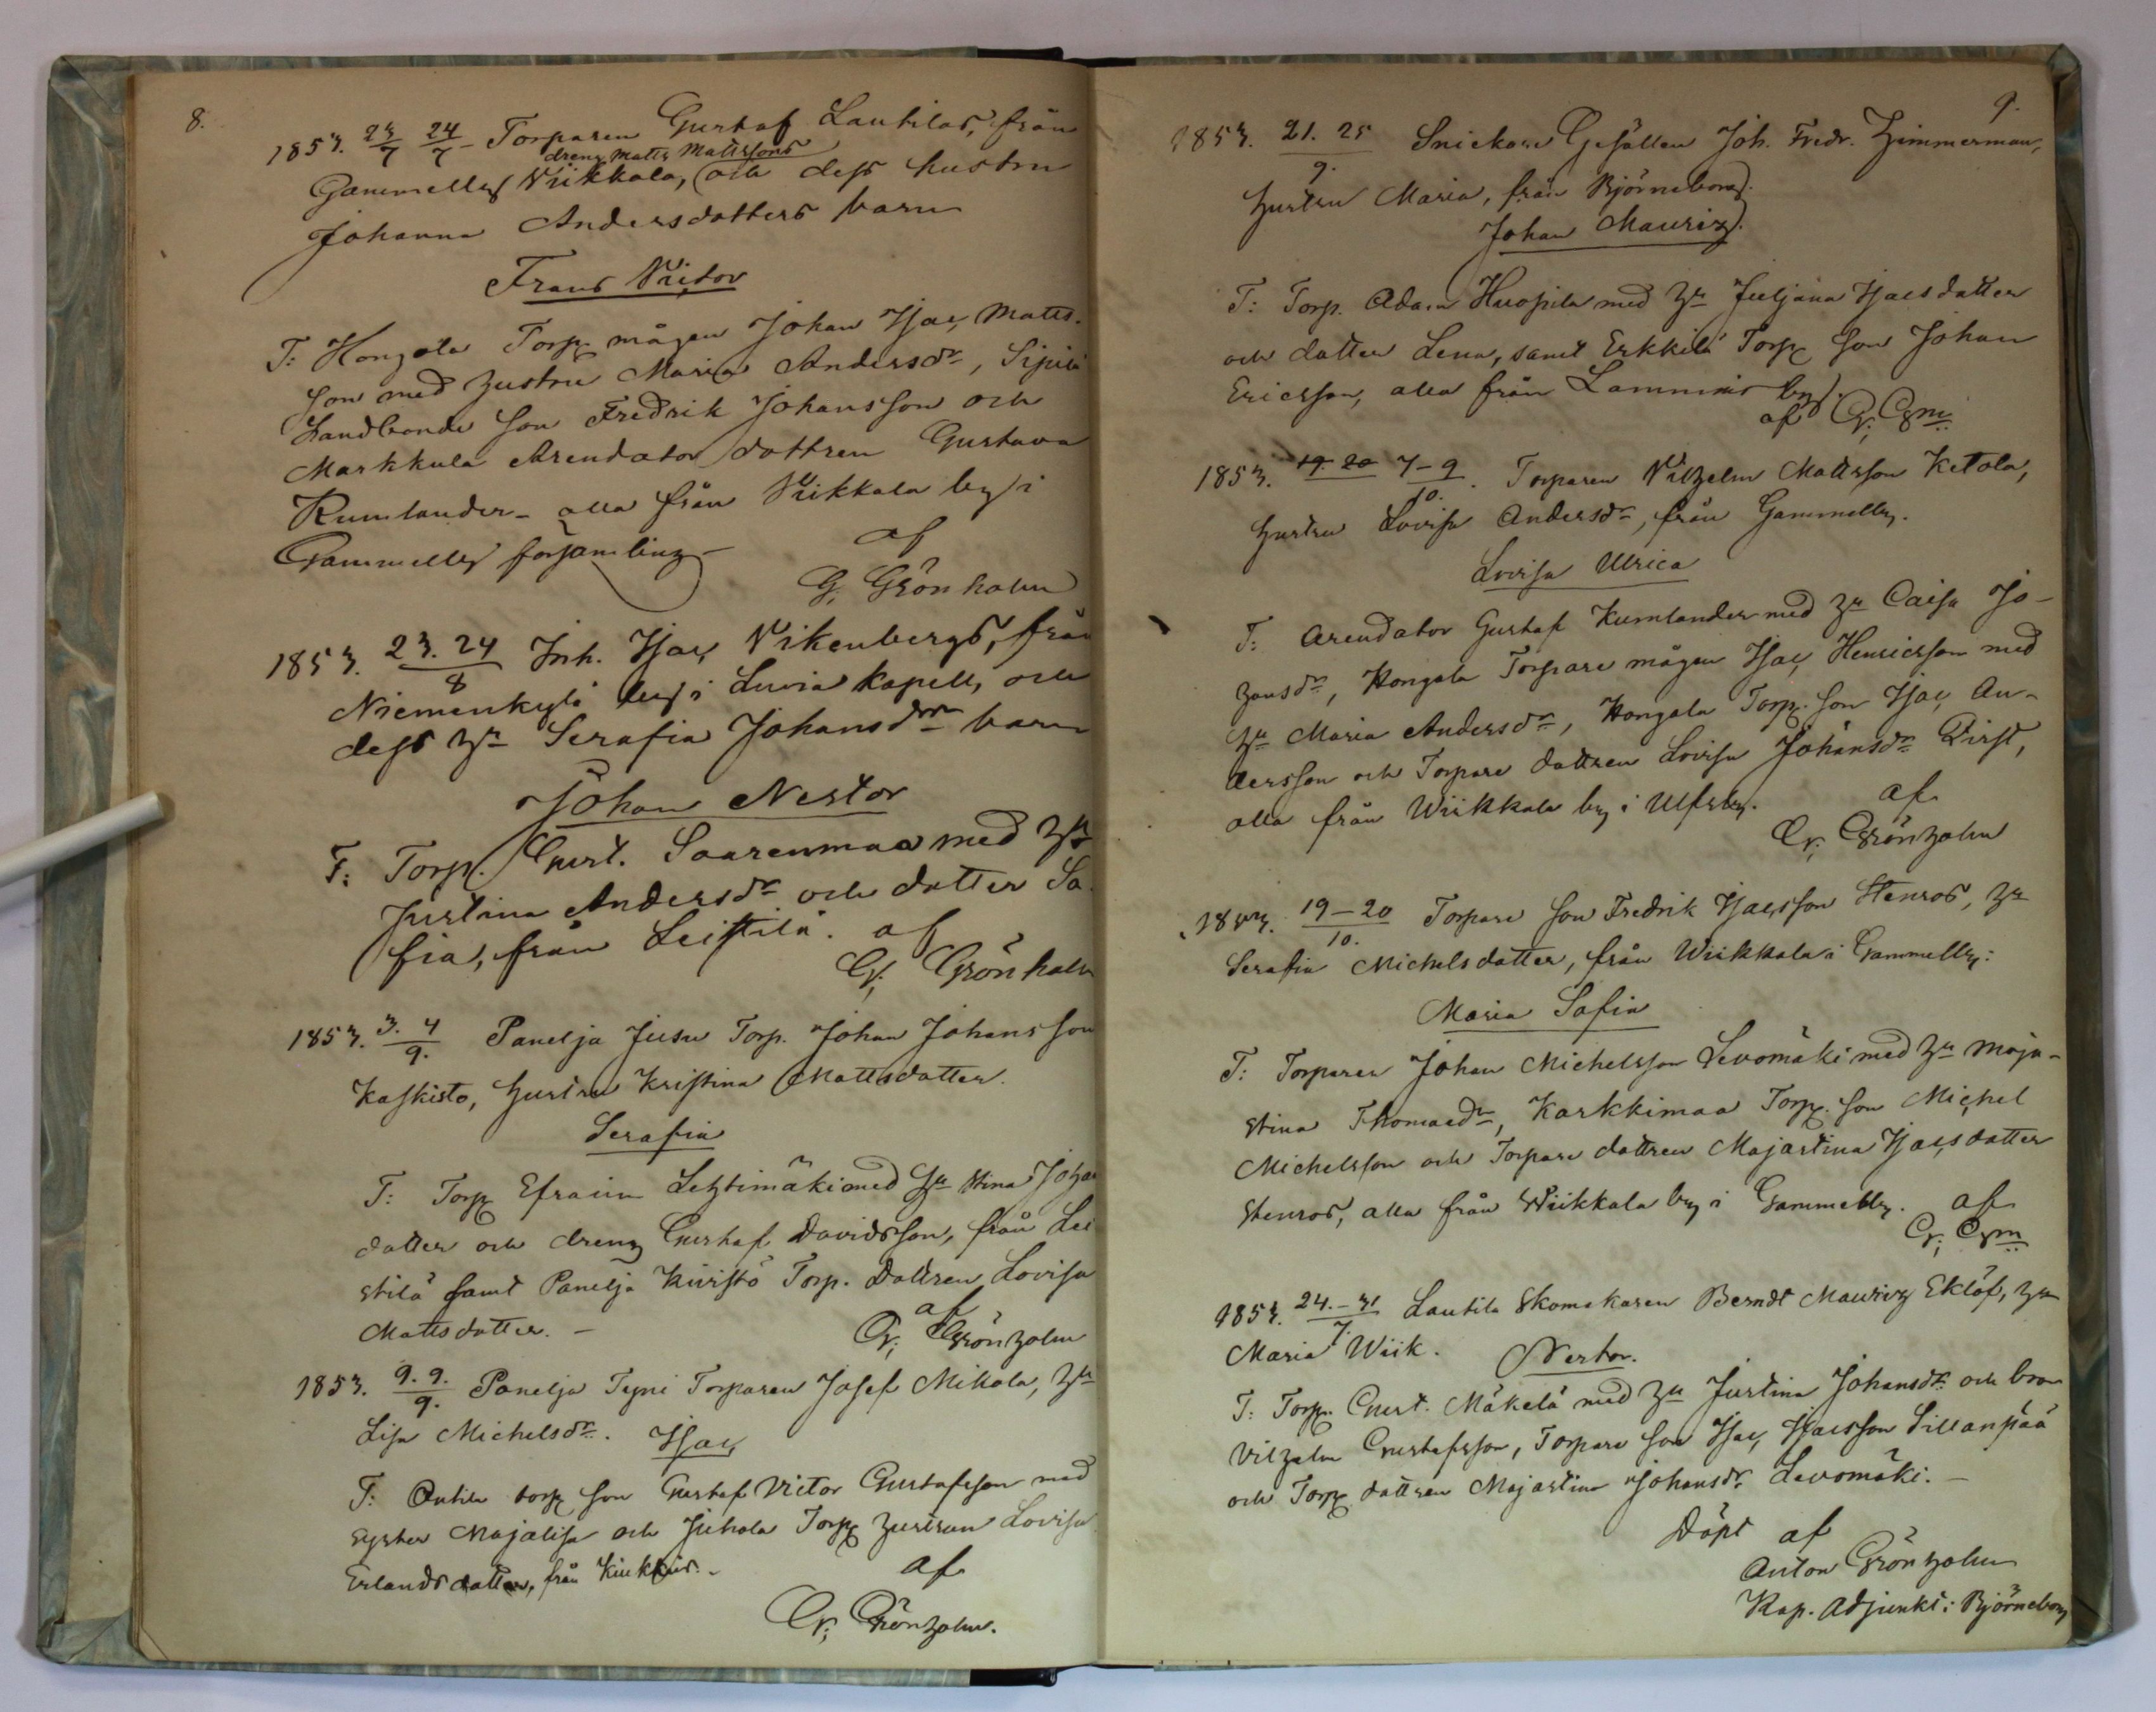 8.
1853. 23/7 24/7 - Torparen Gustaf Lautilas, från
dreng Matts Mattssons
Gammelby Wiikkala, och dess hustru
Johanna Andersdotters barn
Frans Victor
T: Hongola Torp. mågen Johan Isac Matts-
son med hustru Maria Andersdr, Sipilä
Landbonde Son Fredrik Johansson och
Markkula Arendator dottren Gustava
Kumlander - alla från Wiikkala by i
Gammelby församling - af
G. Grönholm
1853. 23. 24/8 Inh. Isac Vikenbergs, från
Niemenkylä by i Luvia Kapell, och
dess Hu Serafia Johansdrs barn
Johan Nestor
F: Torp. Gust. Saarenmaa med Hu
Justina Andersdr och dotter So-
fia, från Leistilä. af
G. Grönholm
1853. 3. 4/9. Panelja Jusu Torp. Johan Johansson
Kaskisto, hustru Kristina Mattsdotter.
Serafia
T: Torp Efraim Lehtimäki med Hu Stina Johans
dotter och dreng Gustaf Davidsson, från Lei
stilä samt Panelja Kuristo Torp. Dottren Lovisa
Mattsdotter. - af
G. Grönholm
1853. 9. 9./9. Panelja Tyni Torparen Josef Mikola, Hu
Lisa Michelsdr. Isac
T: Antila torp son Gustaf Victor Gustafsson med
syster Majalisa och Juhola Torp hustrun Lovisa
Erlandsdotter, från Kiukais. - af
G. Grönholm.
9.
1853. 21. 25/9. Snickare Gesällen Joh. Fredr. Zimmerman,
hustru Maria, från Björneborg.
Johan Mauriz.
T: Torp. Adam Huopila med Hu Juljana Isacsdotter
och dotter Lena, samt Erkkilä Torp Son Johan
Ericsson, alla från Lammais by.
af G. Gm
1853. 19. 20 7-9/10. Torparen Vilhelm Mattsson Ketola,
hustru Lovisa Andersdr, från Gammelby.
Lovisa Ulrica
T: Arendator Gustaf Kumlander med Hu Caisa Jo-
hansdr, Hongola Torpare mågen Isac Henricsson med
Hu Maria Andersdr, Hongola Torp. Son Isac An-
dersson och Torpare dottren Lovisa Johansdr First,
alla från Wiikkala by i Ulfsby. af
G. Grönholm
1853. 19-20/10. Torpare Son Fredrik Isacsson Stenros, Hu
Serafia Michelsdotter, från Wiikkala i Gammelby:
Maria Sofia
T: Torparen Johan Michelsson Levomäki med Hu Maja-
stina Thomasdr, Karkkimaa Torp. son Michel
Michelsson och Torpare dottren Majastina Isacsdotter
Stenros, alla från Wiikkala by i Gammelby. af
G. Gm
1853. 24.-31/7. Lautila Skomakaren Berndt Mauriz Eklöf, Hu
Maria Wiik. Nestor.
T: Torp. Gust. Mäkelä med Hu Justina Johansdr och bror
Vilhelm Gustafsson, Torpare son Isac Isacsson Sillanpää
och Torp dottren Majastina Johansdr Levomäki. -
Döpt af
Anton Grönholm
Kap. Adjunkt i Björneborg